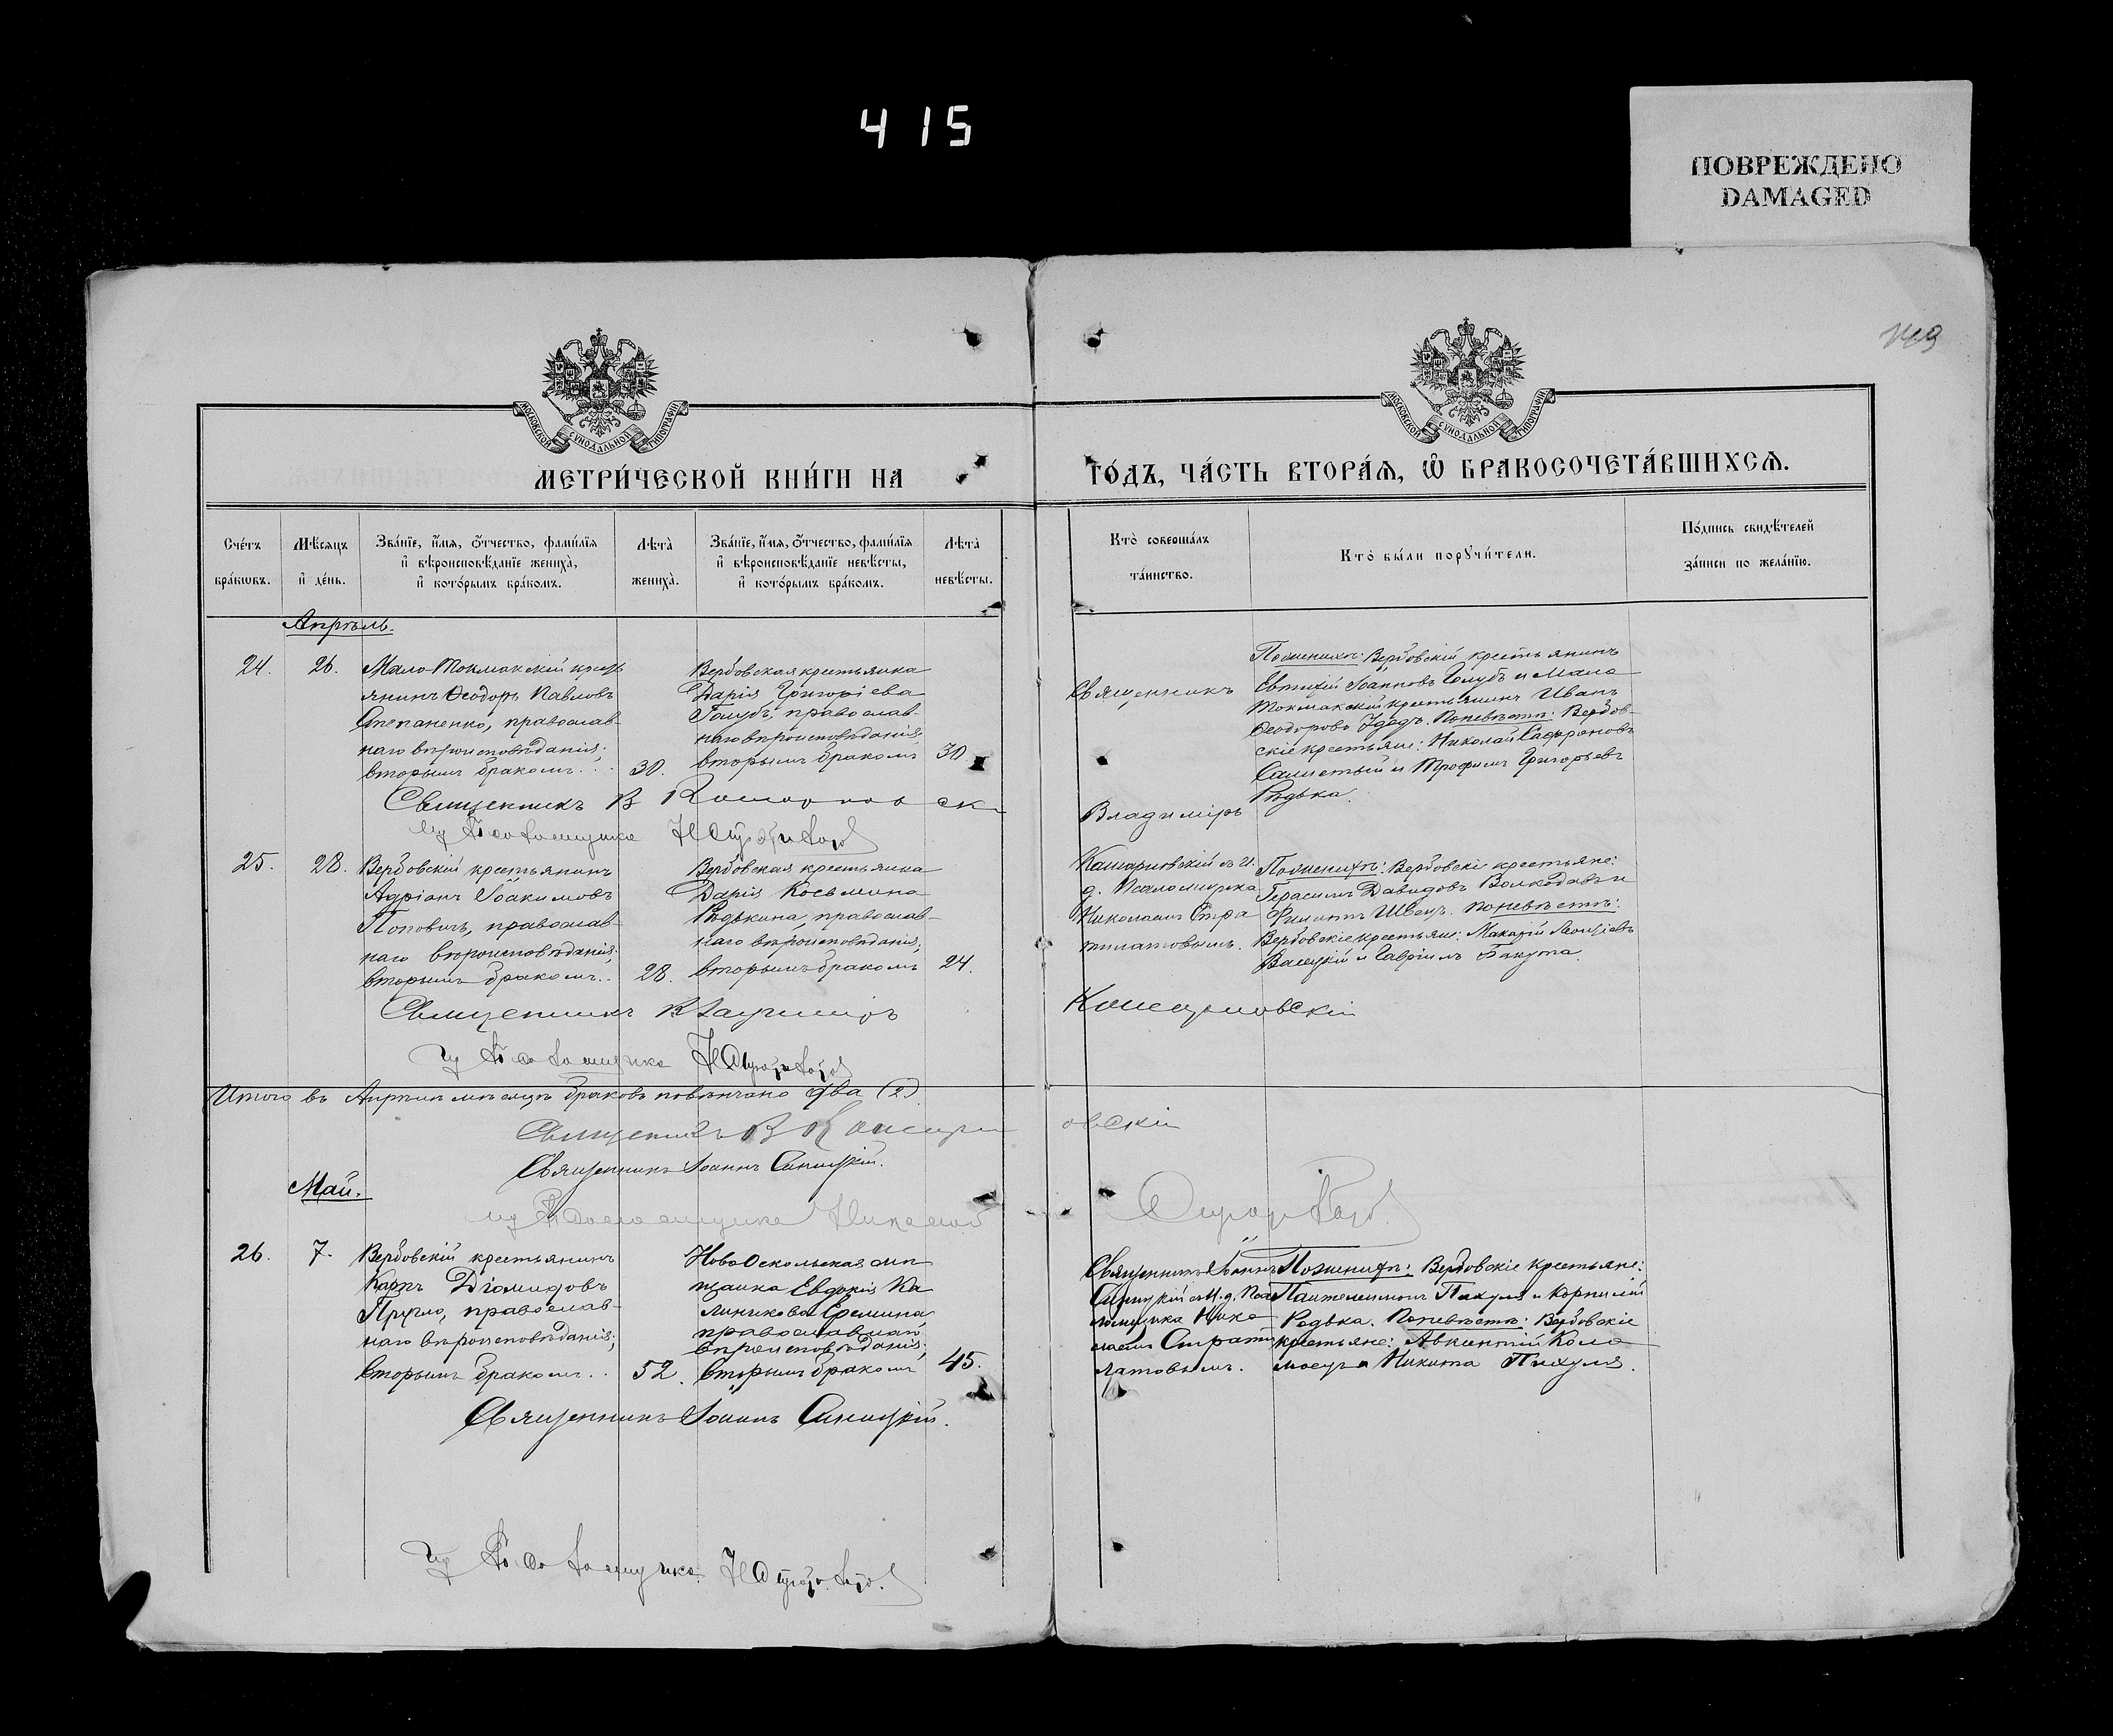 415
ПОВРЕЖДЕНО
DAMAGED
149
МОСКОВСКОЙ СѴНОДАЛЬНОЙ ТИПОГРАФІИ
МОСКОВСКОЙ СѴНОДАЛЬНОЙ ТИПОГРАФІИ
МЕТРИ́ЧЕСКОЙ КНИ́ГИ НА
ГО́ДЪ, ЧА́СТЬ ВТОРА́Я, Ѿ БРАКОСОЧЕТА́ВШИХСЯ.
Сче́тъ
бра́кωвъ.
Мѣ́сяцъ
и҆ де́нь.
Зва́нїе, и҆́мя, ѻ҆́тчество, фамилїя
и҆ вѣроисповѣ́данїе жениха̀,
и҆ кото́рымъ бра́комъ.
Лѣта̀
жениха̀.
Зва́нїе, и҆́мя, ѻ҆́тчество, фамилїя
и҆ вѣроисповѣ́данїе невѣ́сты,
и҆ кото́рымъ бра́комъ.
Лѣта̀
невѣ́сты.
Кто̀ соверша́лъ
та́инство.
Кто̀ бы́ли порꙋчи́тели.
По́дпись свидѣ́телей
за́писи по жела́нїю.
Апрѣль.
24.
26.
Мало-Токмакскій кресть
янинъ Ѳеодоръ Павловъ
Степаненко, православ-
наго вѣроисповѣданія;
вторымъ бракомъ...
30.
Вербовская крестьянка
Дарія Григоріева
Голубъ, православ-
наго вѣроисповѣданія;
вторымъ бракомъ
30.
Священникъ
Владиміръ
По женихѣ: Вербовскій крестьянинъ
Евтихій Іоанновъ Голубъ и Мало
Токмакскій крестьянинъ Иванъ
Ѳеодоровъ По невѣстѣ: Вербов-
скіе крестьяне: Николай Сафроновъ
и Трофимъ Григорьевъ
Рѣдька.
Священникъ В
25.
28.
Вербовскій крестьянинъ
Адріанъ Іоакимовъ
Поповичъ, православ-
наго вѣроисповѣданія;
вторымъ бракомъ..
28.
Вербовская крестьянка
Дарія Косьмина
Рѣдькина, православ-
наго вѣроисповѣданія;
вторымъ бракомъ
24.
съ и.
д. Псаломщика
Николаемъ Стра
тилатовымъ.
По женихѣ: Вербовскіе крестьяне:
Герасимъ Давидовъ Волкодавъ и
Филиппъ Швецъ. По невѣстѣ:
Вербовскіе крестьяне: Макарій Леонтіевъ
и Гавріилъ Бакута.
Священникъ Владиміръ
ид Псаломщика
Итого въ Апрѣлѣ мѣсяцѣ браковъ повѣнчано два (2)
Священникъ В
Священникъ Іоаннъ Синицкій.
Май.
ид Псаломщика Николай
26.
7.
Вербовскій крестьянинъ
Карпъ Діомидовъ
православ-
наго вѣроисповѣданія;
вторымъ бракомъ..
52.
Новооскольская мѣ
щанка Евдокія Ка
линикова Еремина,
православнаго
вѣроисповѣданія;
вторымъ бракомъ
45.
Священникъ Іоаннъ
Синицкій съ И.д. Пса
ломщика Нико
лаемъ Страти
латовымъ.
По женихѣ: Вербовскіе крестьяне:
Пантелеимонъ Пихуля и Корнилій
Редька. По невѣстѣ: Вербовскіе
крестьяне: Авксентій Коло
моецъ и Никита Пихуля.
Священникъ Іоаннъ Синицкій.
ид Псаломщика